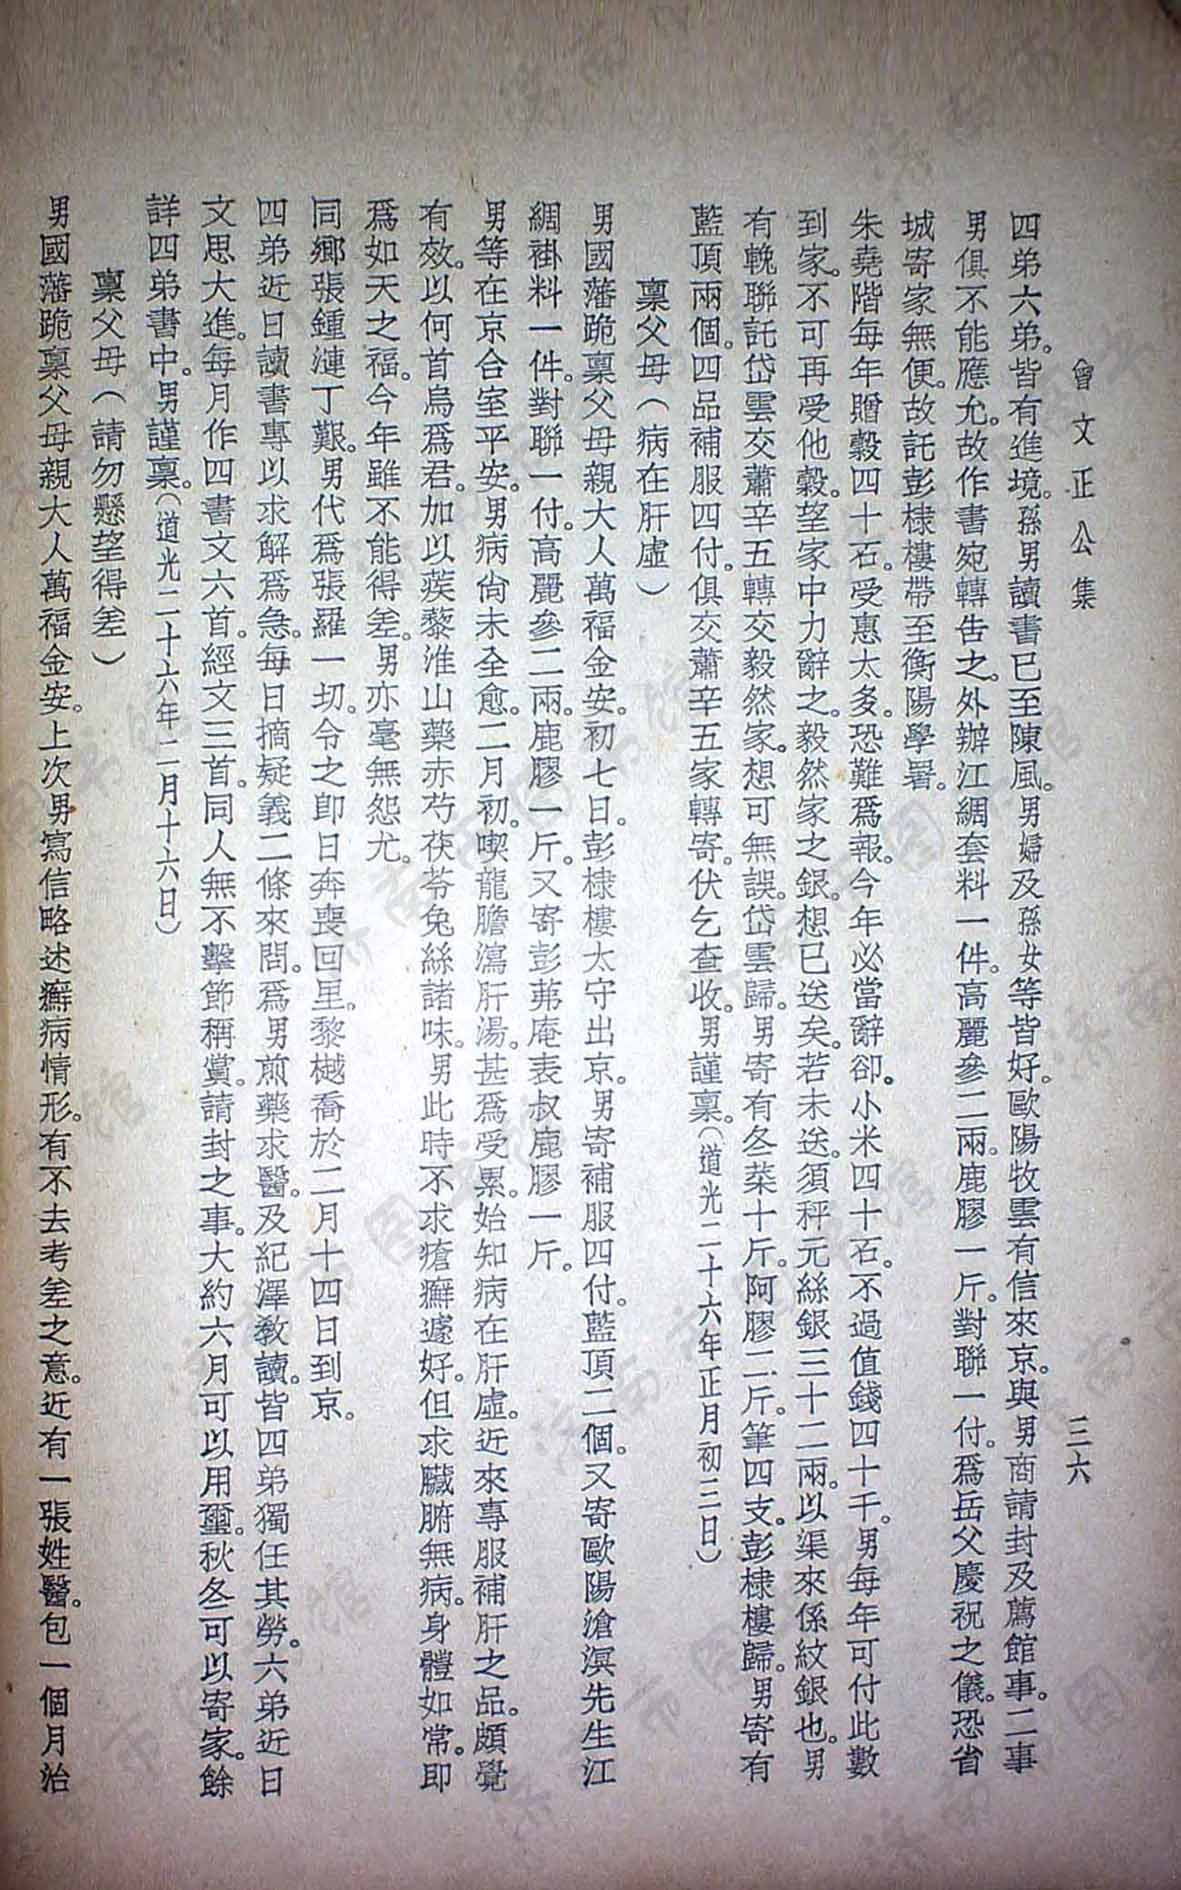 曾文正公集 三六
四弟六弟。皆有進境。孫男讀書已至陳風。男婦及孫女等皆好。歐陽牧雲有信來京。與男商請封及薦館事。二事
男俱不能應允。故作書宛轉告之。外辦江綢套料一件。高麗參二兩。鹿膠一斤。對聯一付。爲岳父慶祝之儀。恐省
城寄家無便。故託彭棣樓帶至衡陽學署。
朱堯階每年贈穀四十石。受惠太多。恐難爲報。今年必當辭卻。小米四十石。不過值錢四十千。男每年可付此數
到家。不可再受他穀。望家中力辭之。毅然家之銀。想已送矣。若未送。須秤元絲銀三十二兩。以渠來係紋銀也。男
有輓聯託岱雲交蕭辛五轉交毅然家。想可無誤。岱雲歸。男寄有冬菜十斤。阿膠二斤。筆四支。彭棣樓歸。男寄有
藍頂兩個。四品補服四付。俱交蕭辛五家轉寄。伏乞查收。男謹稟。(道光二十六年正月初三日)
稟父母(病在肝虛)
男國藩跪稟父母親大人萬福金安。初七日。彭棣樓太守出京。男寄補服四付。藍頂二個。又寄歐陽滄溟先生江
綢褂料一件。對聯一付。高麗參二兩。鹿膠一斤。又寄彭茀庵表叔鹿膠一斤。
男等在京合室平安。男病尙未全愈。二月初。喫龍膽瀉肝湯。甚爲受累。始知病在肝虛。近來專服補肝之品。頗覺
有效。以何首烏爲君。加以蒺藜淮山藥赤芍茯苓兔絲諸味。男此時不求瘡癬遽好。但求臟腑無病。身體如常。卽
爲如天之福。今年雖不能得差。男亦毫無怨尤。
同鄉張鍾漣丁艱。男代爲張羅一切。令之卽日奔喪回里。黎樾喬於二月十四日到京。
四弟近日讀書專以求解爲急。每日摘疑義二條來問。爲男煎藥求醫。及紀澤教讀。皆四弟獨任其勞。六弟近日
文思大進。每月作四書文六首。經文三首。同人無不擊節稱賞。請封之事。大約六月可以用璽。秋冬可以寄家。餘
詳四弟書中。男謹稟。(道光二十六年二月十六日)
稟父母(請勿懸望得差)
男國藩跪稟父母親大人萬福金安。上次男寫信略述癬病情形。有不去考差之意。近有一張姓醫。包一個月治